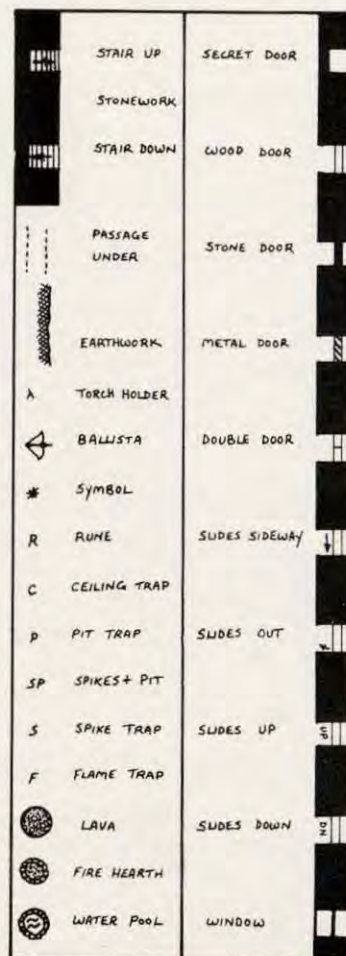 STAIR UP
STONEWORK
STAIR DOWN
PASSAGE
UNDER
EARTHWORK
TORCH HOLDER
BALLISTA
SYMBOL
R RUNE
C CEILING TRAP
P PIT TRAP
SP SPIKES + PIT
S SPIKE TRAP
F FLAME TRAP
LAVA
FIRE HEARTH
WATER POOL
SECRET DOOR
WOOD DOOR
STONE DOOR
METAL DOOR
DOUBLE DOOR
SLIDES SIDEWAY
SLIDES OUT
SLIDES UP UP
SLIDES DOWN DN
WINDOW